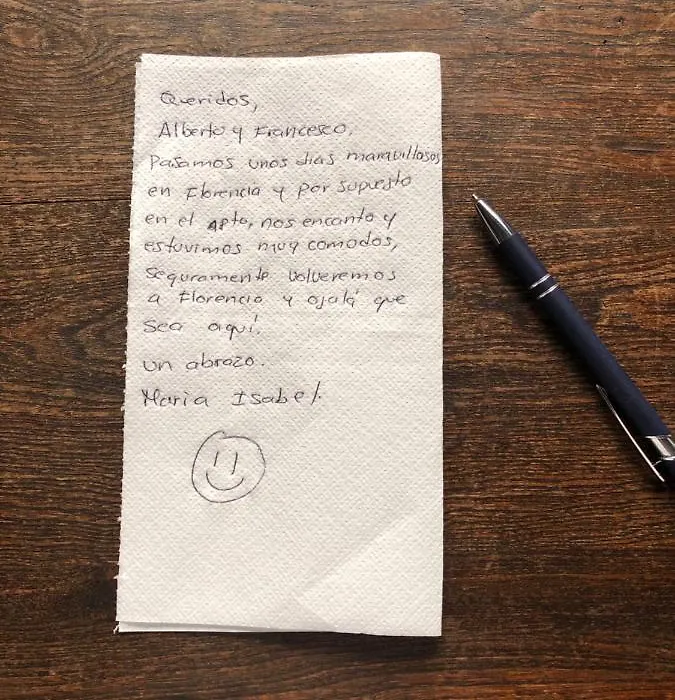 Queridos,
Alberto y Francesco,
Pasamos unos dias maravillosos
en Florencia y por supuesto
en el apto, nos encanto y
estuvimos muy comodos,
seguramente volveremos
a Florencia y ojalá que
sea aquí.
un abrazo.
Maria Isabel.